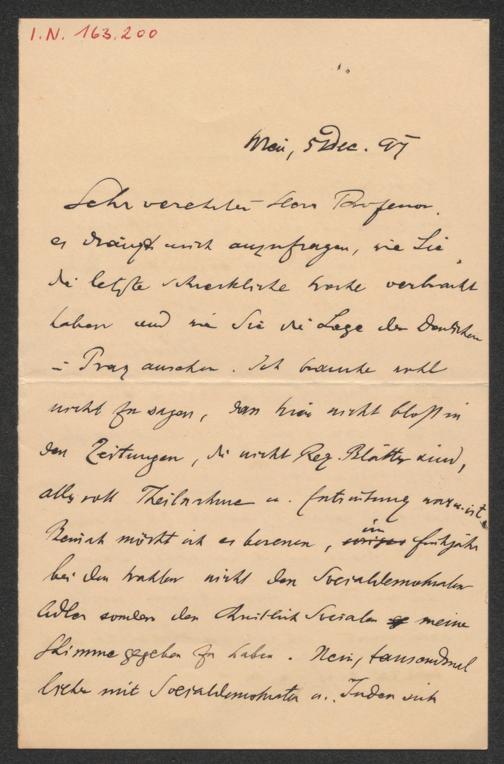 I.N. 163.200
Wien, 5 Dec. 97
Sehr verehrter Herr Professor.
es drängt mich anzufragen, wie Sie
die letzte schreckliche Woche verbracht
haben und wie Sie die Lage der Deutschen
in Prag ansehen. Ich brauche wohl
nicht zu sagen, dass hier nicht bloß in
den Zeitungen, die nicht Reg. Blätter sind,
alles voll Theilnahme u. Entrüstung war u. ist.
Beinah möcht ich es bereuen, voriges im Frühjahr
bei den Wahlen nicht den Socialdemokraten
Adler sondern den Christlich Socialen meine
Stimme gegeben zu haben. Nein, tausendmal
lieber mit Socialdemokraten u. Juden sich